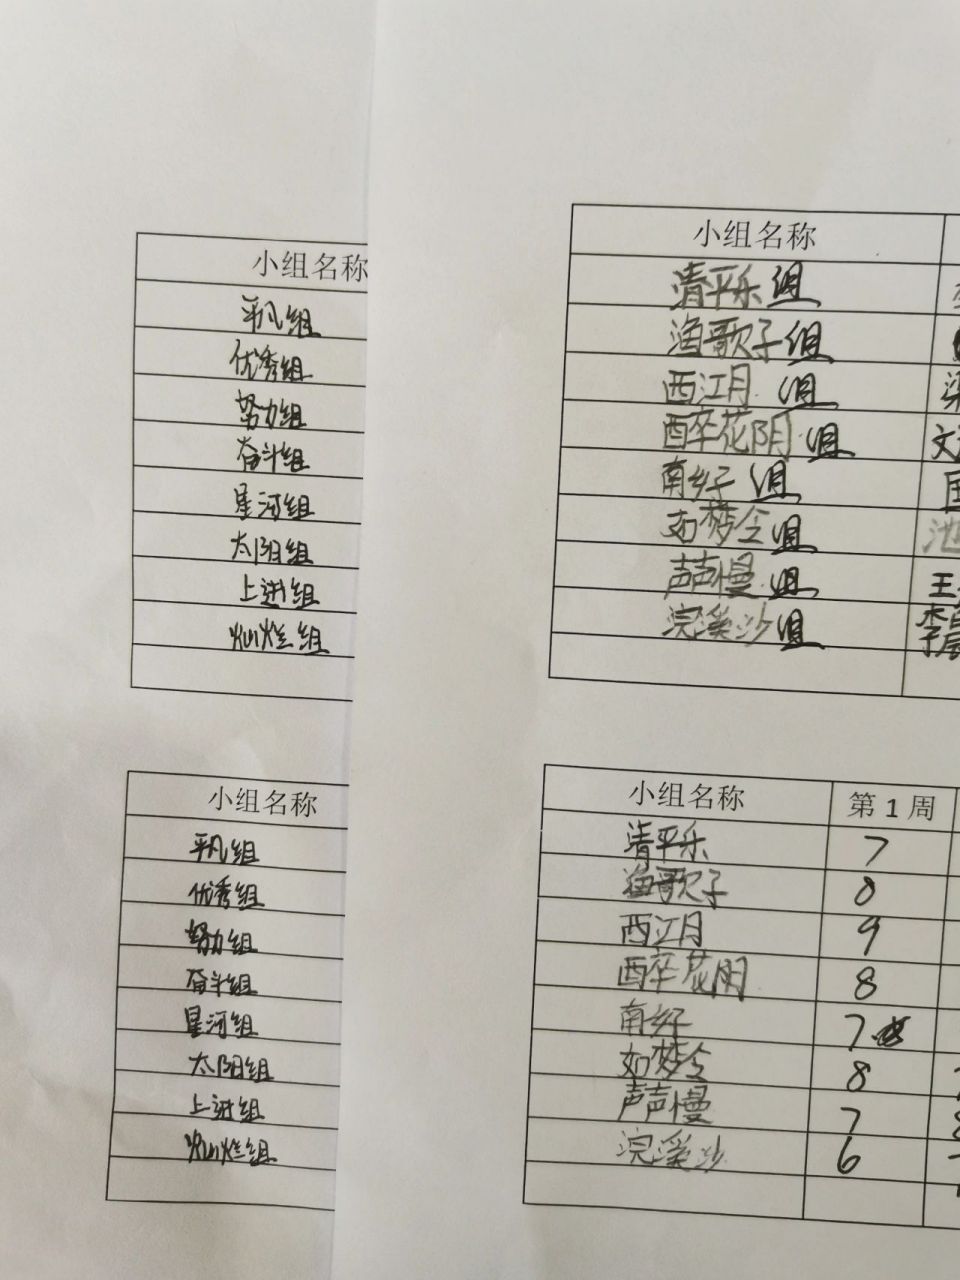 小组名称
平凡组
优秀组
努力组
奋斗组
星河组
太阳组
上进组
灿烂组
小组名称
平凡组
优秀组
努力组
奋斗组
星河组
太阳组
上进组
灿烂组
小组名称
清平乐组
渔歌子组
西江月组
醉花阴组 文
南乡子组
如梦令组 池
声声慢组 王
浣溪沙组
小组名称 第1周
清平乐 7
渔歌子 8
西江月 9
醉花阴 8
南乡子 7
如梦令 8
声声慢 7
浣溪沙 6